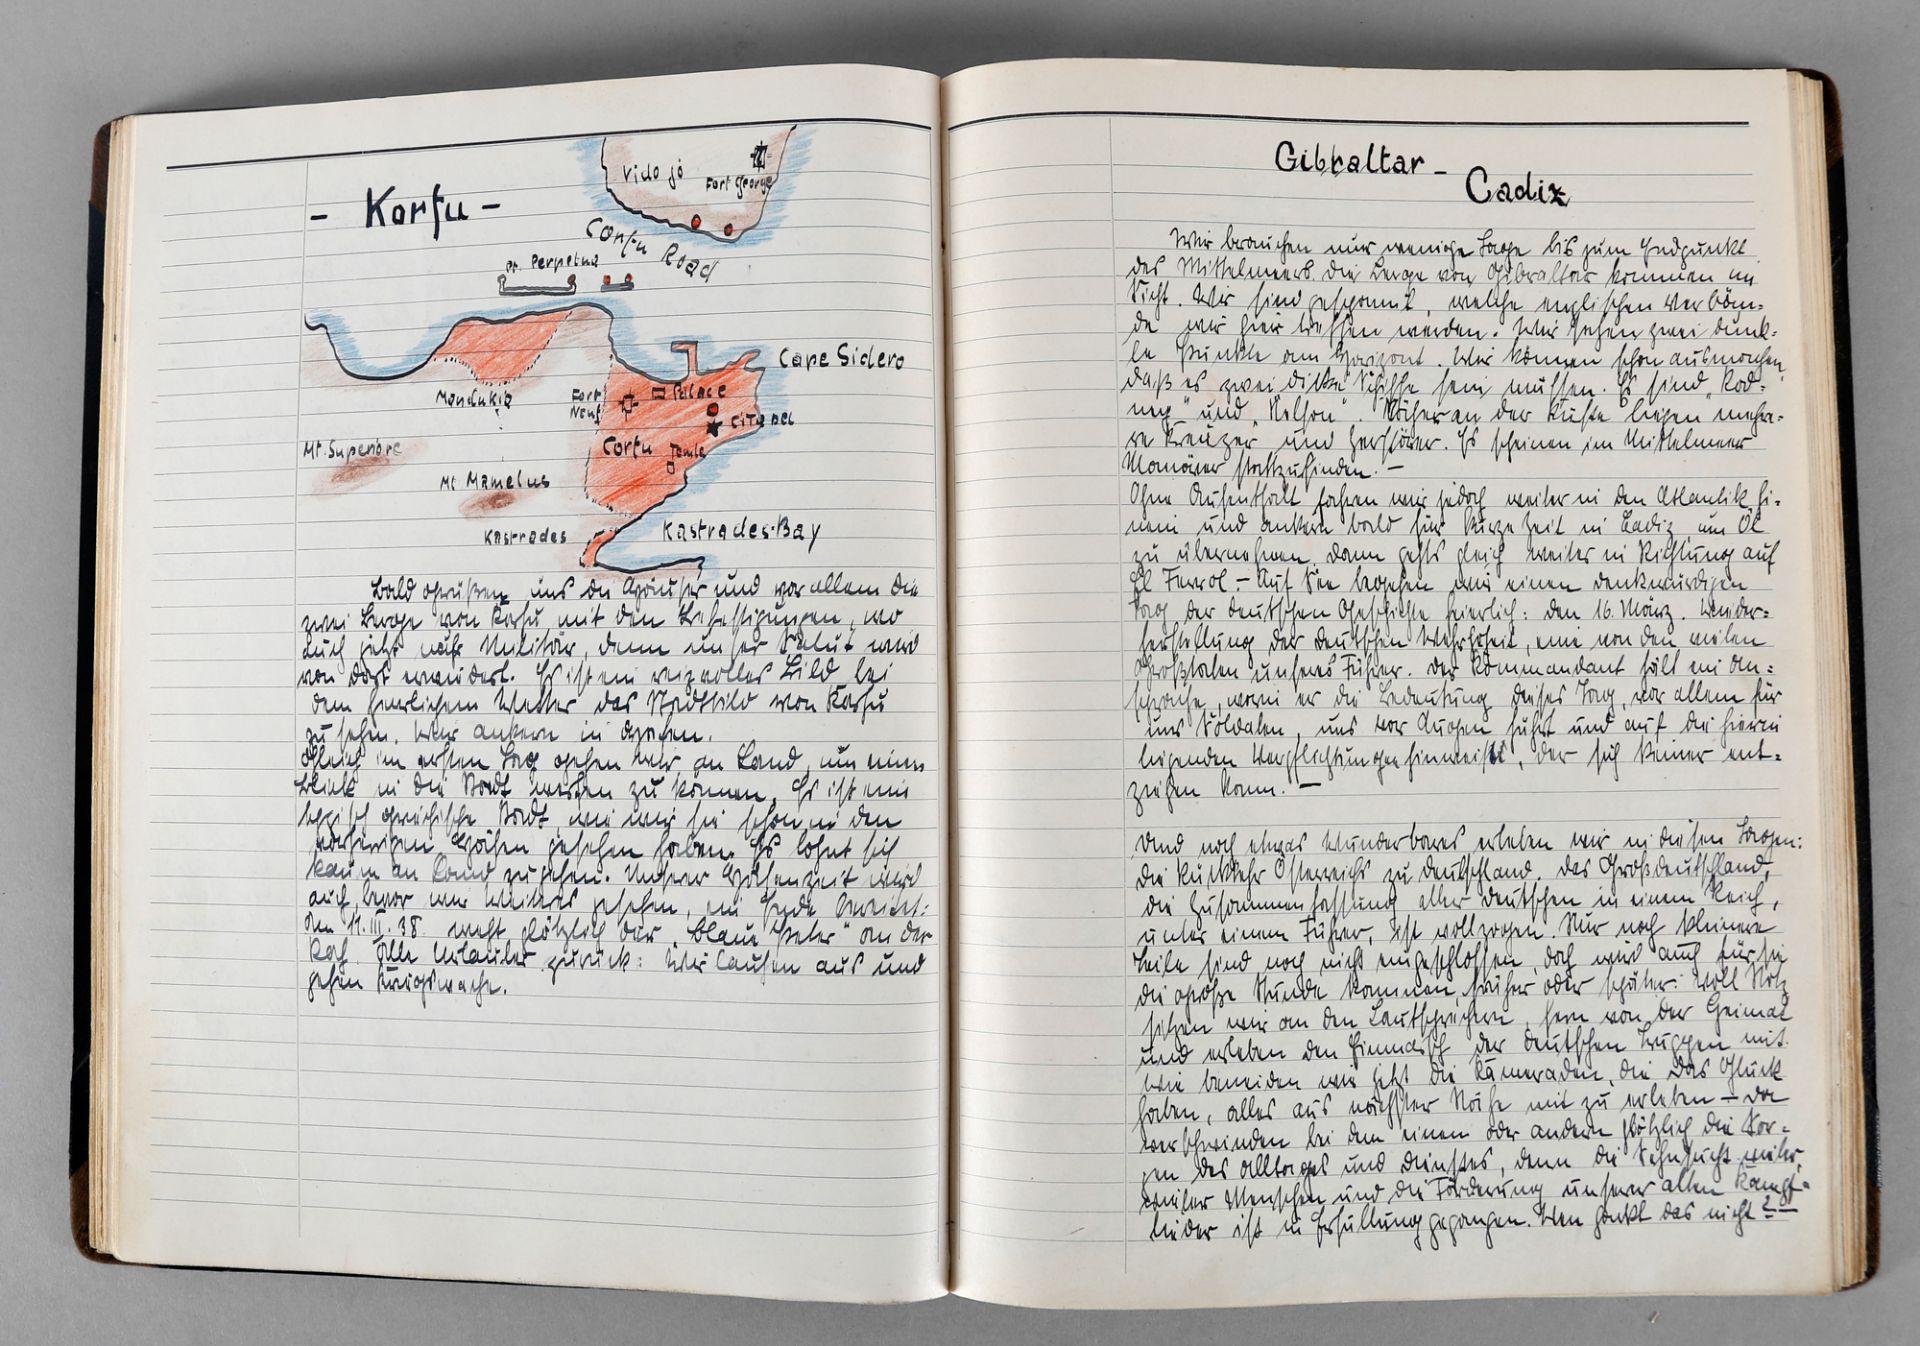 - Korfu -
Vido jo
Fort George
Corfu Road
Pt. Perpetua
Cape Sidero
Mandukio
Fort Neuf
Palace
Citadel
Mt. Superiore
Corfu
Temle
Mt Mamelus
Kastrades
Kastrades-Bay
Bald grüßen uns die Häuser und vor allem die
zwei Berge von Korfu mit den Befestigungen, wo
auch jetzt Militär, denn unser Salut wird
von dort erwidert. Es ist ein reizvolles Bild bei
dem herrlichem Wetter das Stadtbild von Korfu
zu sehen. Wir ankern im Hafen.
Gleich im ersten Tag gehen wir an Land, um einen
Blick in die Stadt werfen zu können. Es ist eine
typisch griechische Stadt, wie wir sie schon in den
vorherigen Häfen gesehen haben. Es lohnt sich
kaum an Land zu gehen. Unserer Hafenzeit wird
auch, bevor wir weiteres gesehen, ein Ende bereitet:
Am 11.III.38. weht plötzlich der "blaue Peter" an der
Rah. Alle Urlauber zurück: Wir laufen aus und
gehen Kriegswache.
Gibraltar -
Cadiz
Wir brauchen nur wenige Tage bis zum Endpunkt
des Mittelmeers. Die Berge von Gibraltar kommen in
Sicht. Wir sind gespannt, welche englischen Verbän-
de wir hier treffen werden. Wir sehen zwei dunk-
le Punkte am Horizont. Wir können schon ausmachen,
daß es zwei dicke Schiffe sein müssen. Es sind "Rod-
ney" und "Nelson". Näher an der Küste liegen mehre-
re Kreuzer und Zerstörer. Es scheinen im Mittelmeer
Manöver stattzufinden. -
Ohne Aufenthalt fahren wir jedoch weiter in den Atlantik hi-
nein und ankern bald für kurze Zeit in Cadiz um Öl
zu übernehmen. Dann gehts gleich weiter in Richtung auf
El Ferrol - Auf See begehen wir einen denkwürdigen
Tag der deutschen Geschichte feierlich: den 16. März. Wieder-
herstellung der deutschen Wehrhoheit, eine von den vielen
Großtaten unseres Führer. Der Kommandant hält ein An-
sprache, worin er die Bedeutung dieses Tag, vor allem für
uns Soldaten, uns vor Augen führt und auf die hierin
liegenden Verpflichtungen hinweist, der sich keiner ent-
ziehen kann. -
Und noch etwas Wunderbares erleben wir in diesen Tagen:
die Rückkehr Österreichs zu Deutschland. Das Großdeutschland,
die Zusammenfassung aller Deutschen in einem Reich,
unter einem Führer, ist vollzogen. Nur noch kleinere
Teile sind noch nicht eingeschlossen, doch wird auch für sie
die große Stunde kommen, früher oder später. Voll Stolz
sitzen wir an den Lautsprechern, fern von der Heimat
und erleben den Einmarsch der deutschen Truppen mit.
Wie beneiden wir jetzt die Kameraden, die das Glück
haben, alles aus nächster Nähe mit zu erleben - da
verschwinden bei dem einen oder andern plötzlich die Sor-
gen des Alltages und Dienstes, denn die Sehnsucht vieler,
vieler Menschen und die Förderung unserer alten Kampf-
lieder ist in Erfüllung gegangen. Wen packt das nicht?-